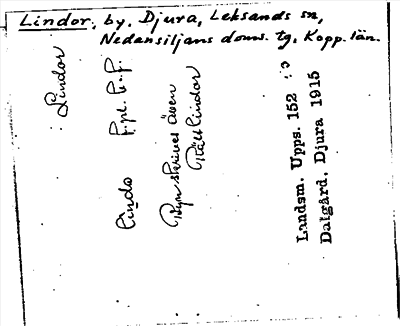 Lindor, by, Djura, Leksands sn,
Nedansiljans doms. tg, Kopp. län.
Lindor
lindo f.pl. b.f.
Byn skrives även
Rällindor
Landsm. Upps. 152
Dalgård, Djura 1915